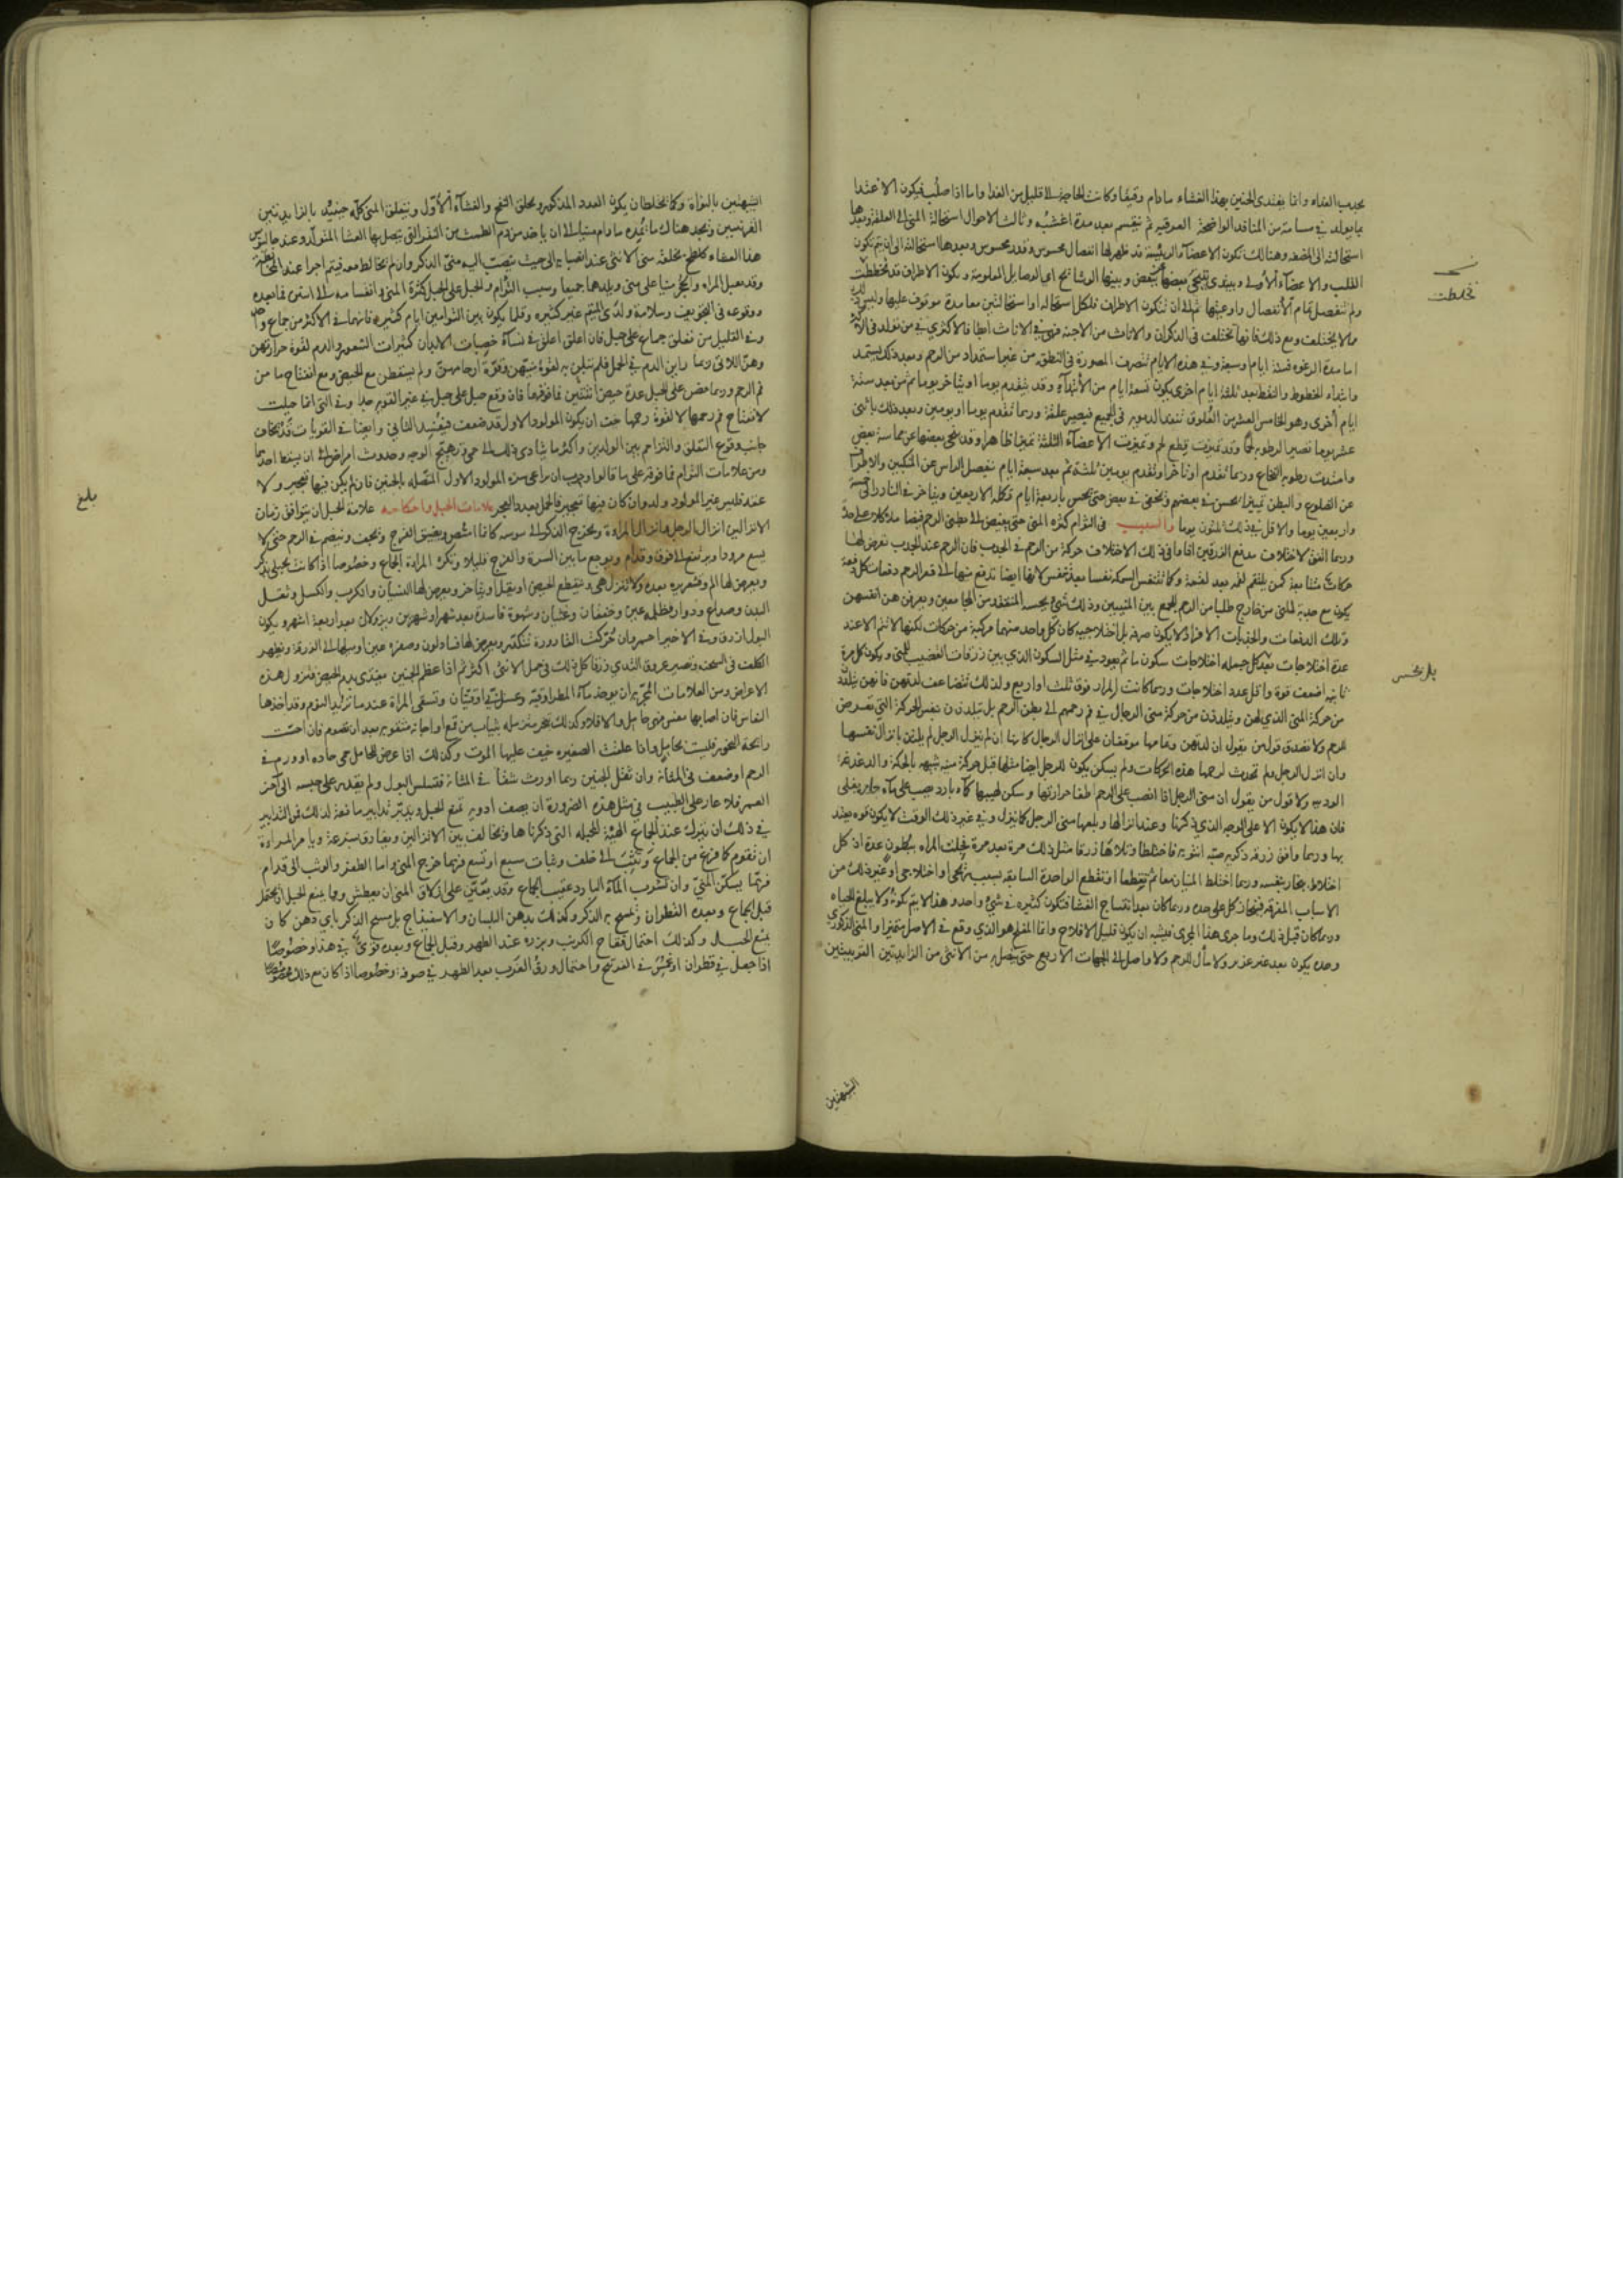 يجذب الغذاء وانما يغتذى الجنين بهذا الغشاء ما دام رقيقا وكانت الحاجة الى قليل من الغذا واما اذا صلب فيكون الاغتذا
استحالته الى المضغة وهنالك تكون الاعضاء الرئيسة قد ظهر لها انفصال محسوس وقدر محسوس وبعدها استحالته الى ان يتم تكون
القلب والاعضاء الاولى
ولم تنفصل تمام الانفصال واوعيتها ثم الى ان تتكون الاطراف فلكل استحالة او استحالتين معا مدة موقوف عليها وليس
مما لا يختلف ومع ذلك فانها تختلف فى الذكران والاناث من الاجنة فهى فى الاناث ابطا
اما مدة الرغوة فستة ايام او سبعة وفى هذه الايام تتصرف المصورة فى النطفة من غير استمداد من الرحم وبعد ذلك يستمد
وابتداء الخطوط والنقط بعد ثلثة ايام اخرى يكون تسعة ايام من الابتداء وقد يتقدم يوما او يتاخر يوما ثم من بعد ستة
ايام اخرى وهو الخامس عشر من العلوق تنفذ الدموية فى الجميع فيصير علقة وربما تقدم يوما او يومين وبعد ذلك باثنى
عشر يوما تصير الرطوبة لحما وقد تميزت قطع لحم وتميزت الاعضاء الثلثة تميزا ظاهرا وقد تنحى بعضها عن مماسة بعض
وامتدت رطوبة النخاع وربما تقدم او تاخر او تقدم يومين ثلثة ثم بعد سبعة ايام تنفصل الراس عن المنكبين والاطراف
عن الضلوع والبطن تميزا يحس فى بعضهم ويخفى فى بعض حتى يحس باربعة ايام تكملة الاربعين ويتاخر فى النادر الى خمسة
واربعين يوما والاقل فى ذلك ثلثون يوما والسبب فى التوام كثرة المنى حتى يفيض الى بطنى الرحم فيضا
وربما اتفق لاختلاف مدفع الزرقين اذا وافى ذلك الاختلاف حركة من الرحم فى الجذب فان الرحم عند الجذب تعرض لها
حركات متتابعة كمن يلتقم لقمة بعد لقمة وكما تتنفس السمكة تنفسا بعد تنفس لانها ايضا تدفع منيها الى قعر الرحم دفعات كل دفعة
يكون مع جذبة للمنى من خارج طلبا من الرحم للجمع بين المنيين وذلك شى يحسه المتفقد من المجامعين ويعرفن هن انفسهن
وتلك الدفعات والجذبات لا يكون صرفة بل اختلاجية كان كل واحد منهما مركبة من حركات لكنها لا تتم الا عند
عدة اختلاجات
ثانية اضعف قوة واقل عدد اختلاجات وربما كانت المرار فوق ثلث او اربع ولذلك تتضاعف لذتهن فانهن يتلذذن
من حركة المنى الذى لهن ويتلذذن من حركة منى الرجال فى فم رحمهم الى بطن الرحم بل يتلذذن بنفس الحركة التى تعرض
للرحم ولا تصدق قول من يقول ان لذتهن وتمامها موقوفان على انزال الرجال كانها ان لم ينزل الرجل لم يلتذ بانزال نفسها
وان انزل الرجل ولم تحدث لرحمها هذه الحركات ولم يسكن
ولا قول من يقول ان منى الرجل اذا انصب على الرحم اطفا حرارتها وسكن لهيبها كماء بارد يصب على ماء حار يغلى
فان هذا لا يكون الا على الوجه الذى ذكرنا وعند انزالها وبلعها منى الرجل كما ينزل وفى غير ذلك الوقت لا يكون قوة يعتد
بها وربما وافق زرقة ذكورية صبة انثوية فاختلطا وتلاها زرقا مثل ذلك مرة بعد مرة فحملت المراة ببطون عدة اذ كل
اختلاط ينحاز بنفسه وربما اختلط المنيان معا ثم تقطعا او تقطع الواحدة السابقة بسبب ريحى او اختلاجى او غير ذلك من
الاسباب المفرقة فينحاز كل على حدة وربما كان بعد انتساج الغشا فتكون كثيرة فى شى واحد وهذا لا يتم تكونه ولا يبلغ الحياه
وربما كان قبل ذلك وما جرى هذا المجرى فيشبه ان يكون قليل الافلاح وانما المفلح هو الذى وقع فى الاصل متميزا والمنى الذكورى
وحده يكون بعد غير غزير ولا مالئ للرحم ولا واصل الى الجهات الاربع حتى يتصل به من الانثى من الزايدتين القرنيتين
الشبيهتين
نسخه
تخطت
الشبيهتين بالنواة وكما يختلطان يكون الغدد المذكورة ويخلق النفخ والغشاء الاول ويتعلق المنى كله حينئذ بالزايدتين
القرنيتين ويجد هناك ما يمده ما دام منيا الى ان ياخذ من دم الطمث من النقر التى يتصل بها الغشا المتولد وعند جالينوس
هذا الغشاء كلطخ يخلفه منى الانثى عند انصبابه الى حيث ينصب اليه منى الذكر وان لم يخالطه معه فيتم اجرا عند المخالطة
وقد تحبل المراه والجنين منيا على منى ويلدهما جميعا وسبب التوام والحبل على الحبل كثرة المنى وانقسامه الى اثنين فما بعده
ووقوعه فى التجويفين وسلامة ولدى المتئم غير كثيرة وقلما يكون بين التوامين ايام كثيرة فانهما فى الاكثر من جماع واحد
وفى القليل من تعلق جماع على حبل فان اعلق اعلق فى نساء خصبات الابدان كثيرات الشعور والدم لقوة حرارتهن
وهن اللاتى ربما راين الدم فى الحمل فلم يبالين به لقوة منيهن وقوة ارحامهن ولم يسقطن مع الحيض ومع انفتاح ما من
فم الرحم وربما حضن على الحبل عدة حيض اثنتين فما فوقهما فان وقع حبل على حبل فى غير القوية جدا وفى التى انما حبلت
لانفتاح فم رحمها لا لقوة رحمها خيف ان يكون المولود الاول قد ضعف فيفسد الثانى وايضا فى القويات قد يخاف
جانب وقوع التعلق والتزاحم بين الولدين واكثر ما يتادى ذلك الى حمى وتهيج الوجه وحدوث امراض الى ان يسقط احدهما
ومن علامات التوام فما فوقه على ما قالوا وجرب ان يراعى سرة المولود الاول المتصلة بالجنين فان لم يكن فيها تعجير ولا
عقد فليس غير المولود ولد وان كان فيها تعجير فالحمل بعدد العجر علامات الحبل واحكامه علامة الحبل ان يتوافق زمان
الانزالين انزال الرجل وانزال المراة ويخرج الذكر الى يبوسة كانما امتص ويضيق الفرج ويجف وينضم فم الرحم حتى لا
يسع مرودا ويرتفع الى فوق وقدام ويوجع ما بين السرة والفرج قليلا وتكره المراة الجماع وخصوصا اذا كانت حبلى بذكر
ويعرض لها الم وقشعريره بعده ولا تنزل هى وينقطع الحيض او يقل او يتاخر ويعرض لها الغثيان والكرب والكسل وثقل
البدن وصداع ودوار وظلمة عين وخفقان وغثيان وشهوة فاسدة بعد شهر او شهرين ويزول بعد اربعة اشهر ويكون
البول ازرق وفى الاخير احمر وان حركت القارورة تتكدر ويعرض لها فساد لون وصفرة عين او ميلها الى الزرقة ويظهر
الكلف فى السحنة وتصير عروق الثدى زرقا كل ذلك فى حمل الانثى اكثر ثم اذا عظم الجنين يغتذى بدم الحيض فتزول هذه
الاعراض ومن العلامات المجربة ان يوخذ ماء المطر اوقية وعسل نى اوقيتان وتسقى المراة عند ما تريد النوم وقد اخذها
النعاس فان اصابها مغص فهى حامل والا فلا وكذلك
رائحة البخور فليست بحامل واذا علقت الصغيرة خيف عليها الموت وكذلك اذا عرض للحامل حمى حاده او ورم فى
الرحم او ضعف فى المثانة وان ثقل الجنين ربما اورث شقا فى المثانة فتسلس البول ولم يقدر على حبسه الى آخر
العمر فلا عار على الطبيب فى مثل هذه الضرورة ان يصف ادوية تمنع الحبل ويدبر تدابير مانعة لذلك فمن التدابير
فى ذلك ان يترك عند الجماع الهيئة المحبلة التى ذكرناها ويخالف بين الانزالين ويفارق بسرعة ويامر المراة
ان تقوم كما فرغ من الجماع وتثب الى خلف وثبات سبع او تسع فربما خرج المنى واما الطفر والوثب الى قدام
فربما يسكن المنى وان تشرب الماء البارد عقيب الجماع وقد يعين على ازلاق المنى ان يعطش ومما يمنع الحبل ان تحتمل
قبل الجماع وبعده القطران وتمسح به الذكر وكذلك بدهن البلسان والاسفيداج بل مسح الذكر باى دهن كان
يمنع الحبل وكذلك احتمال فقاح الكرنب وبزره عند الطهر وقبل الجماع وبعده قوى فى هذا وخصوصا
اذا جعل فى قطران او غمس فى الفوتنج واحتمال ورق الغرب بعد الطهر فى صوفة وخصوصا اذا كان مع ذلك
بلغ